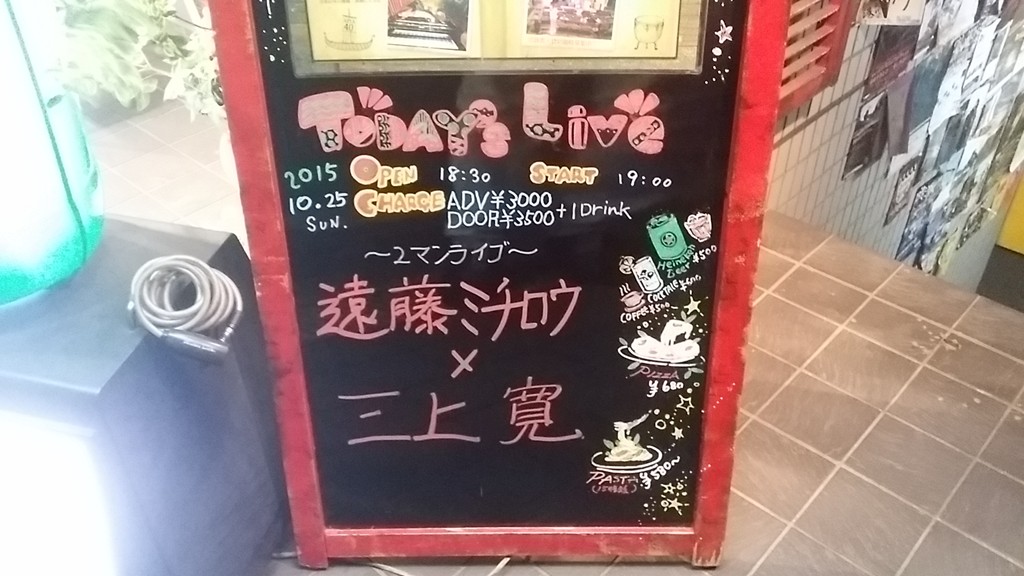 TODAY's Live
2015 OPEN 18:30 START 19:00
10.25 CHARGE ADV¥3000
SUN. DOOR¥3500 +1Drink
～2マンライブ～
遠藤ミチロウ
×
三上 寛
¥500
COFFEE
PIZZA
¥680
PASTA
¥580～